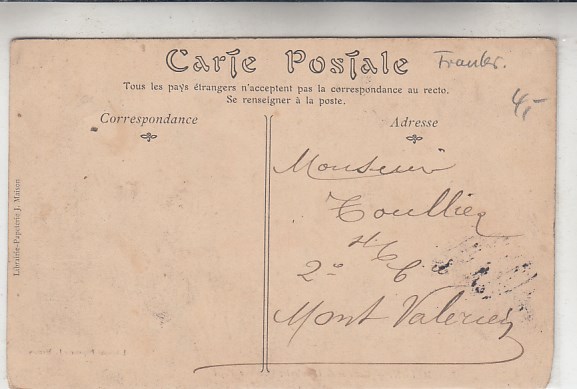 Carte Postale
Frankr.
4,-
Tous les pays étrangers n'acceptent pas la correspondance au recto.
Se renseigner à la poste.
Correspondance
Adresse
Monsieur
Toullier
2e Cie
Mont Valerien
Librairie-Papeterie J. Maison